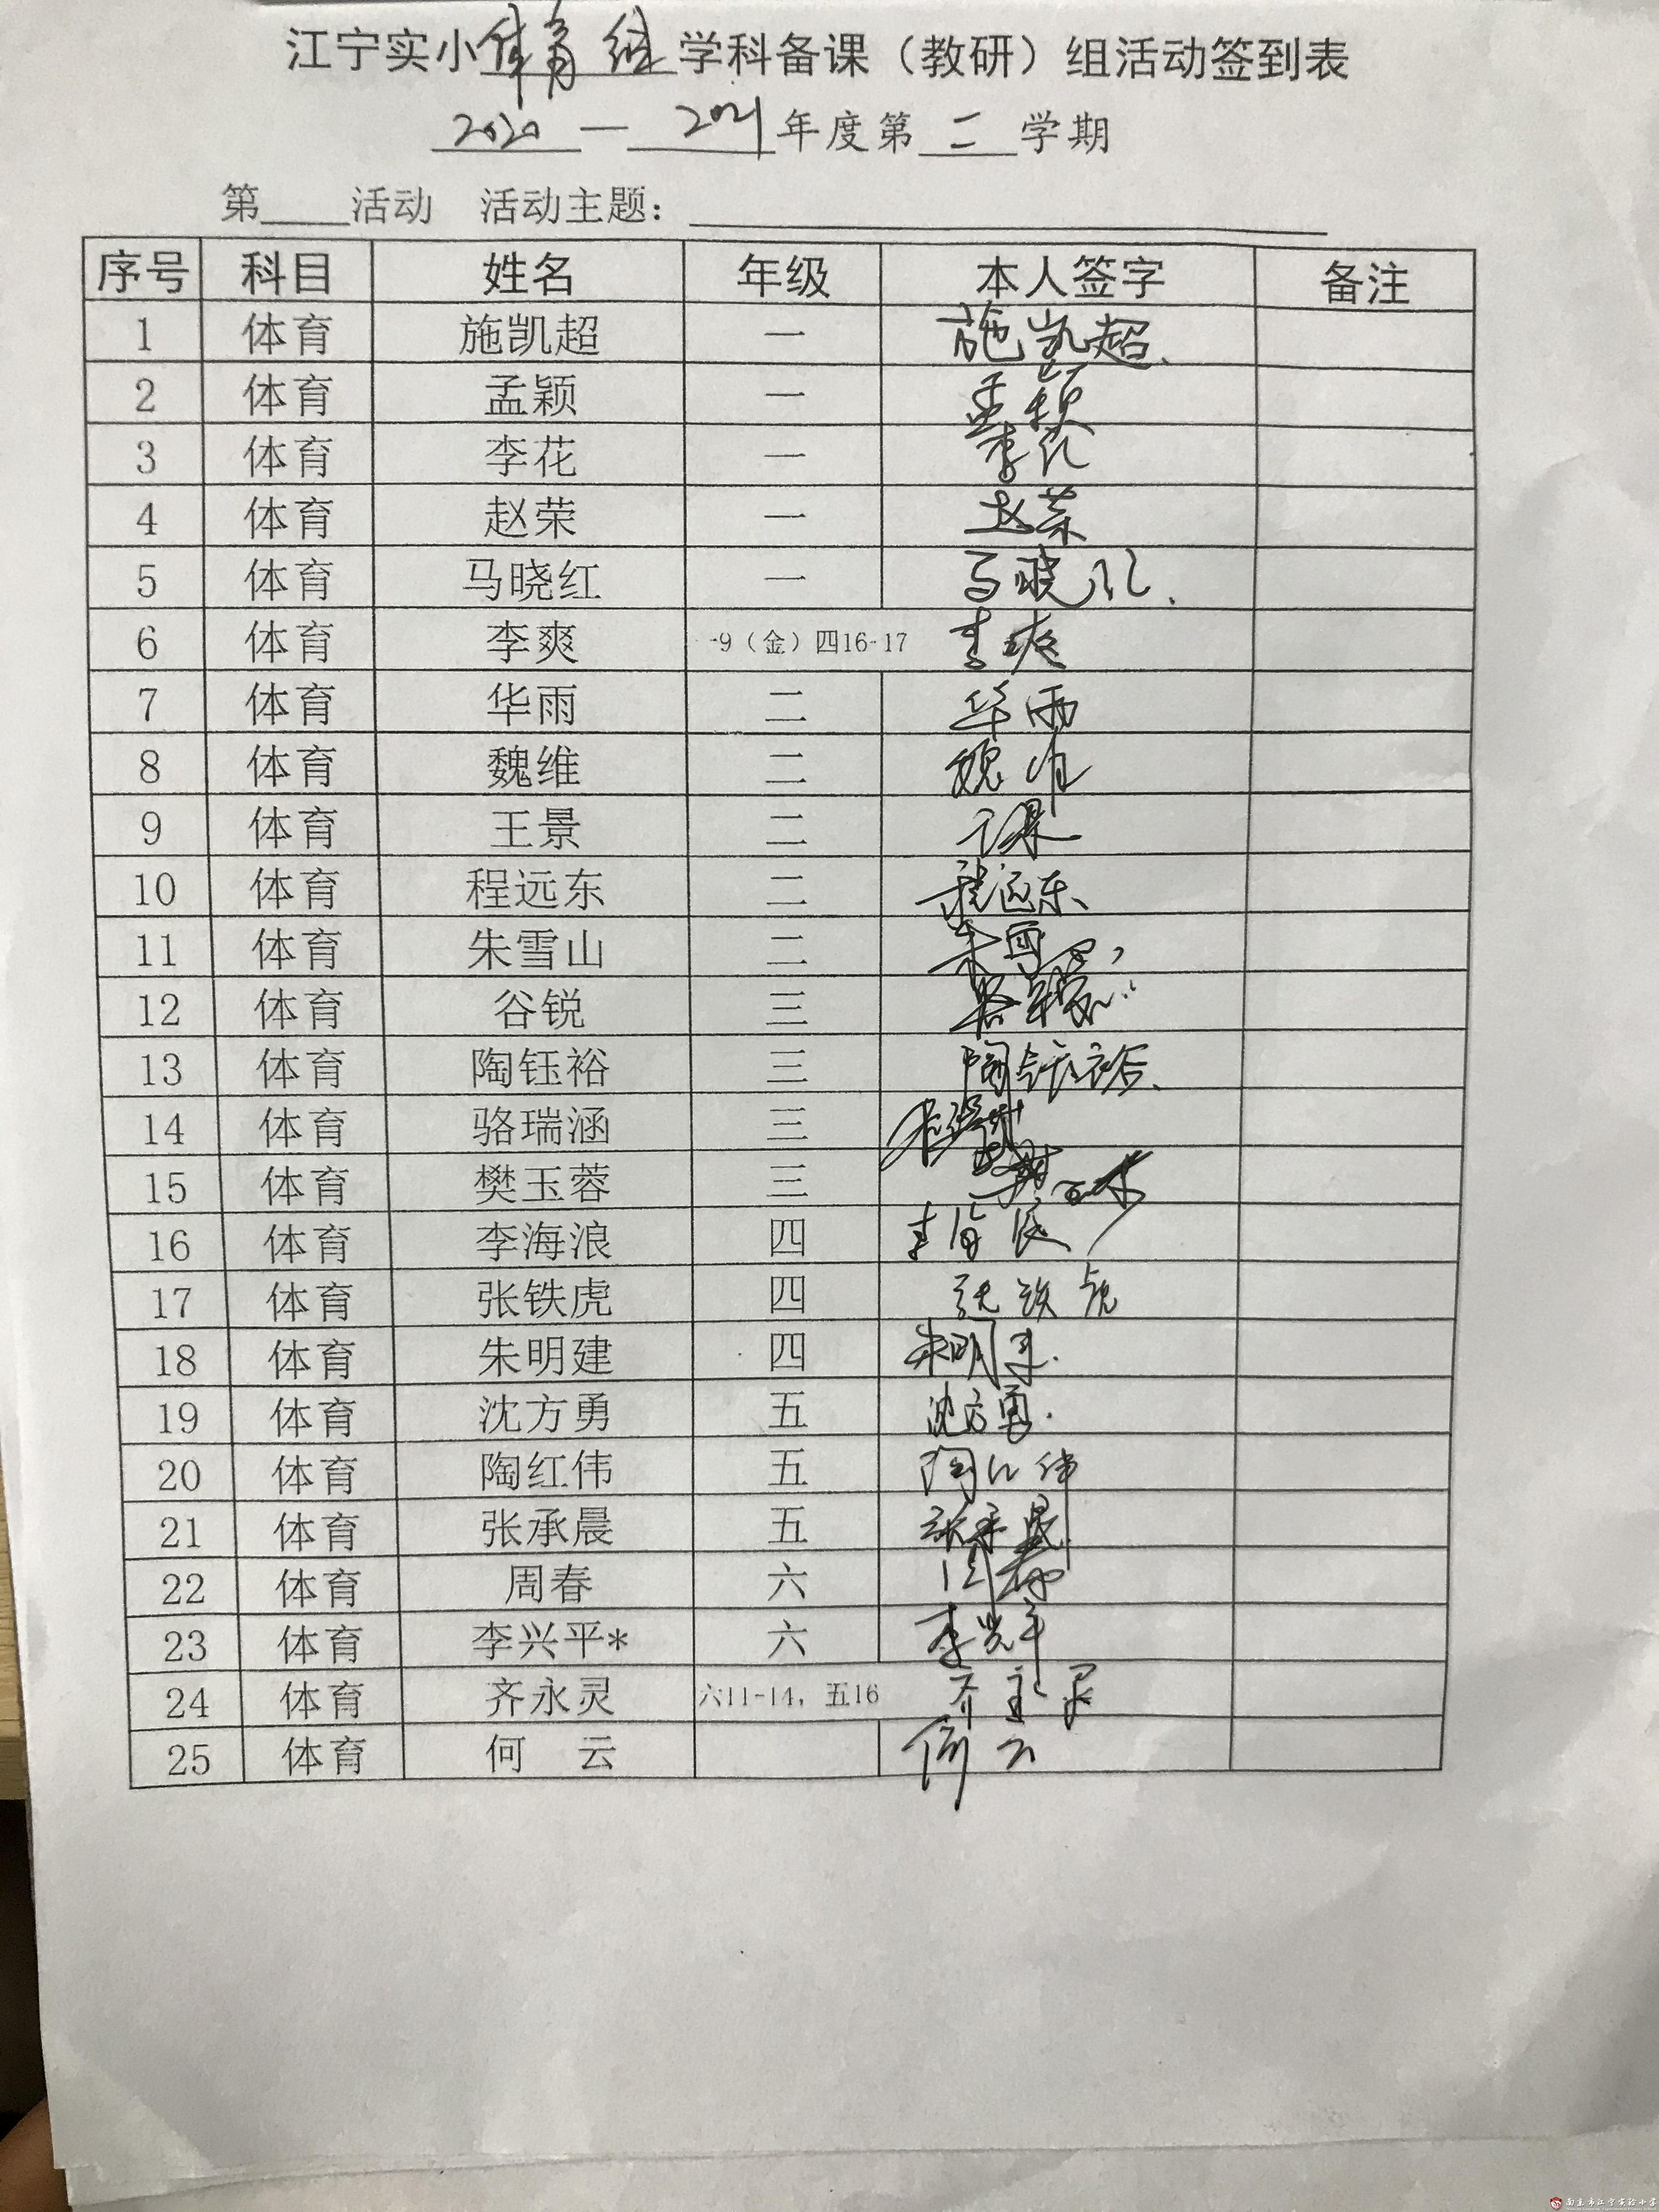 江宁实小体育组学科备课（教研）组活动签到表
2020—2021年度第二学期
第____活动 活动主题：
序号 科目 姓名 年级 本人签字 备注
1 体育 施凯超 一 施凯超
2 体育 孟颖 一 孟颖
3 体育 李花 一 李花
4 体育 赵荣 一 赵荣
5 体育 马晓红 一 马晓红
6 体育 李爽 -9（金）四16-17 李爽
7 体育 华雨 二 华雨
8 体育 魏维 二 魏维
9 体育 王景 二 王景
10 体育 程远东 二 程远东
11 体育 朱雪山 二 朱雪山
12 体育 谷锐 三
13 体育 陶钰裕 三 陶钰裕
14 体育 骆瑞涵 三
15 体育 樊玉蓉 三
16 体育 李海浪 四 李海浪
17 体育 张铁虎 四 张铁虎
18 体育 朱明建 四 朱明建
19 体育 沈方勇 五 沈方勇
20 体育 陶红伟 五 陶红伟
21 体育 张承晨 五 张承晨
22 体育 周春 六 周春
23 体育 李兴平* 六 李兴平
24 体育 齐永灵 六11-14，五16 齐永灵
25 体育 何 云 何云
南京市江宁实验小学